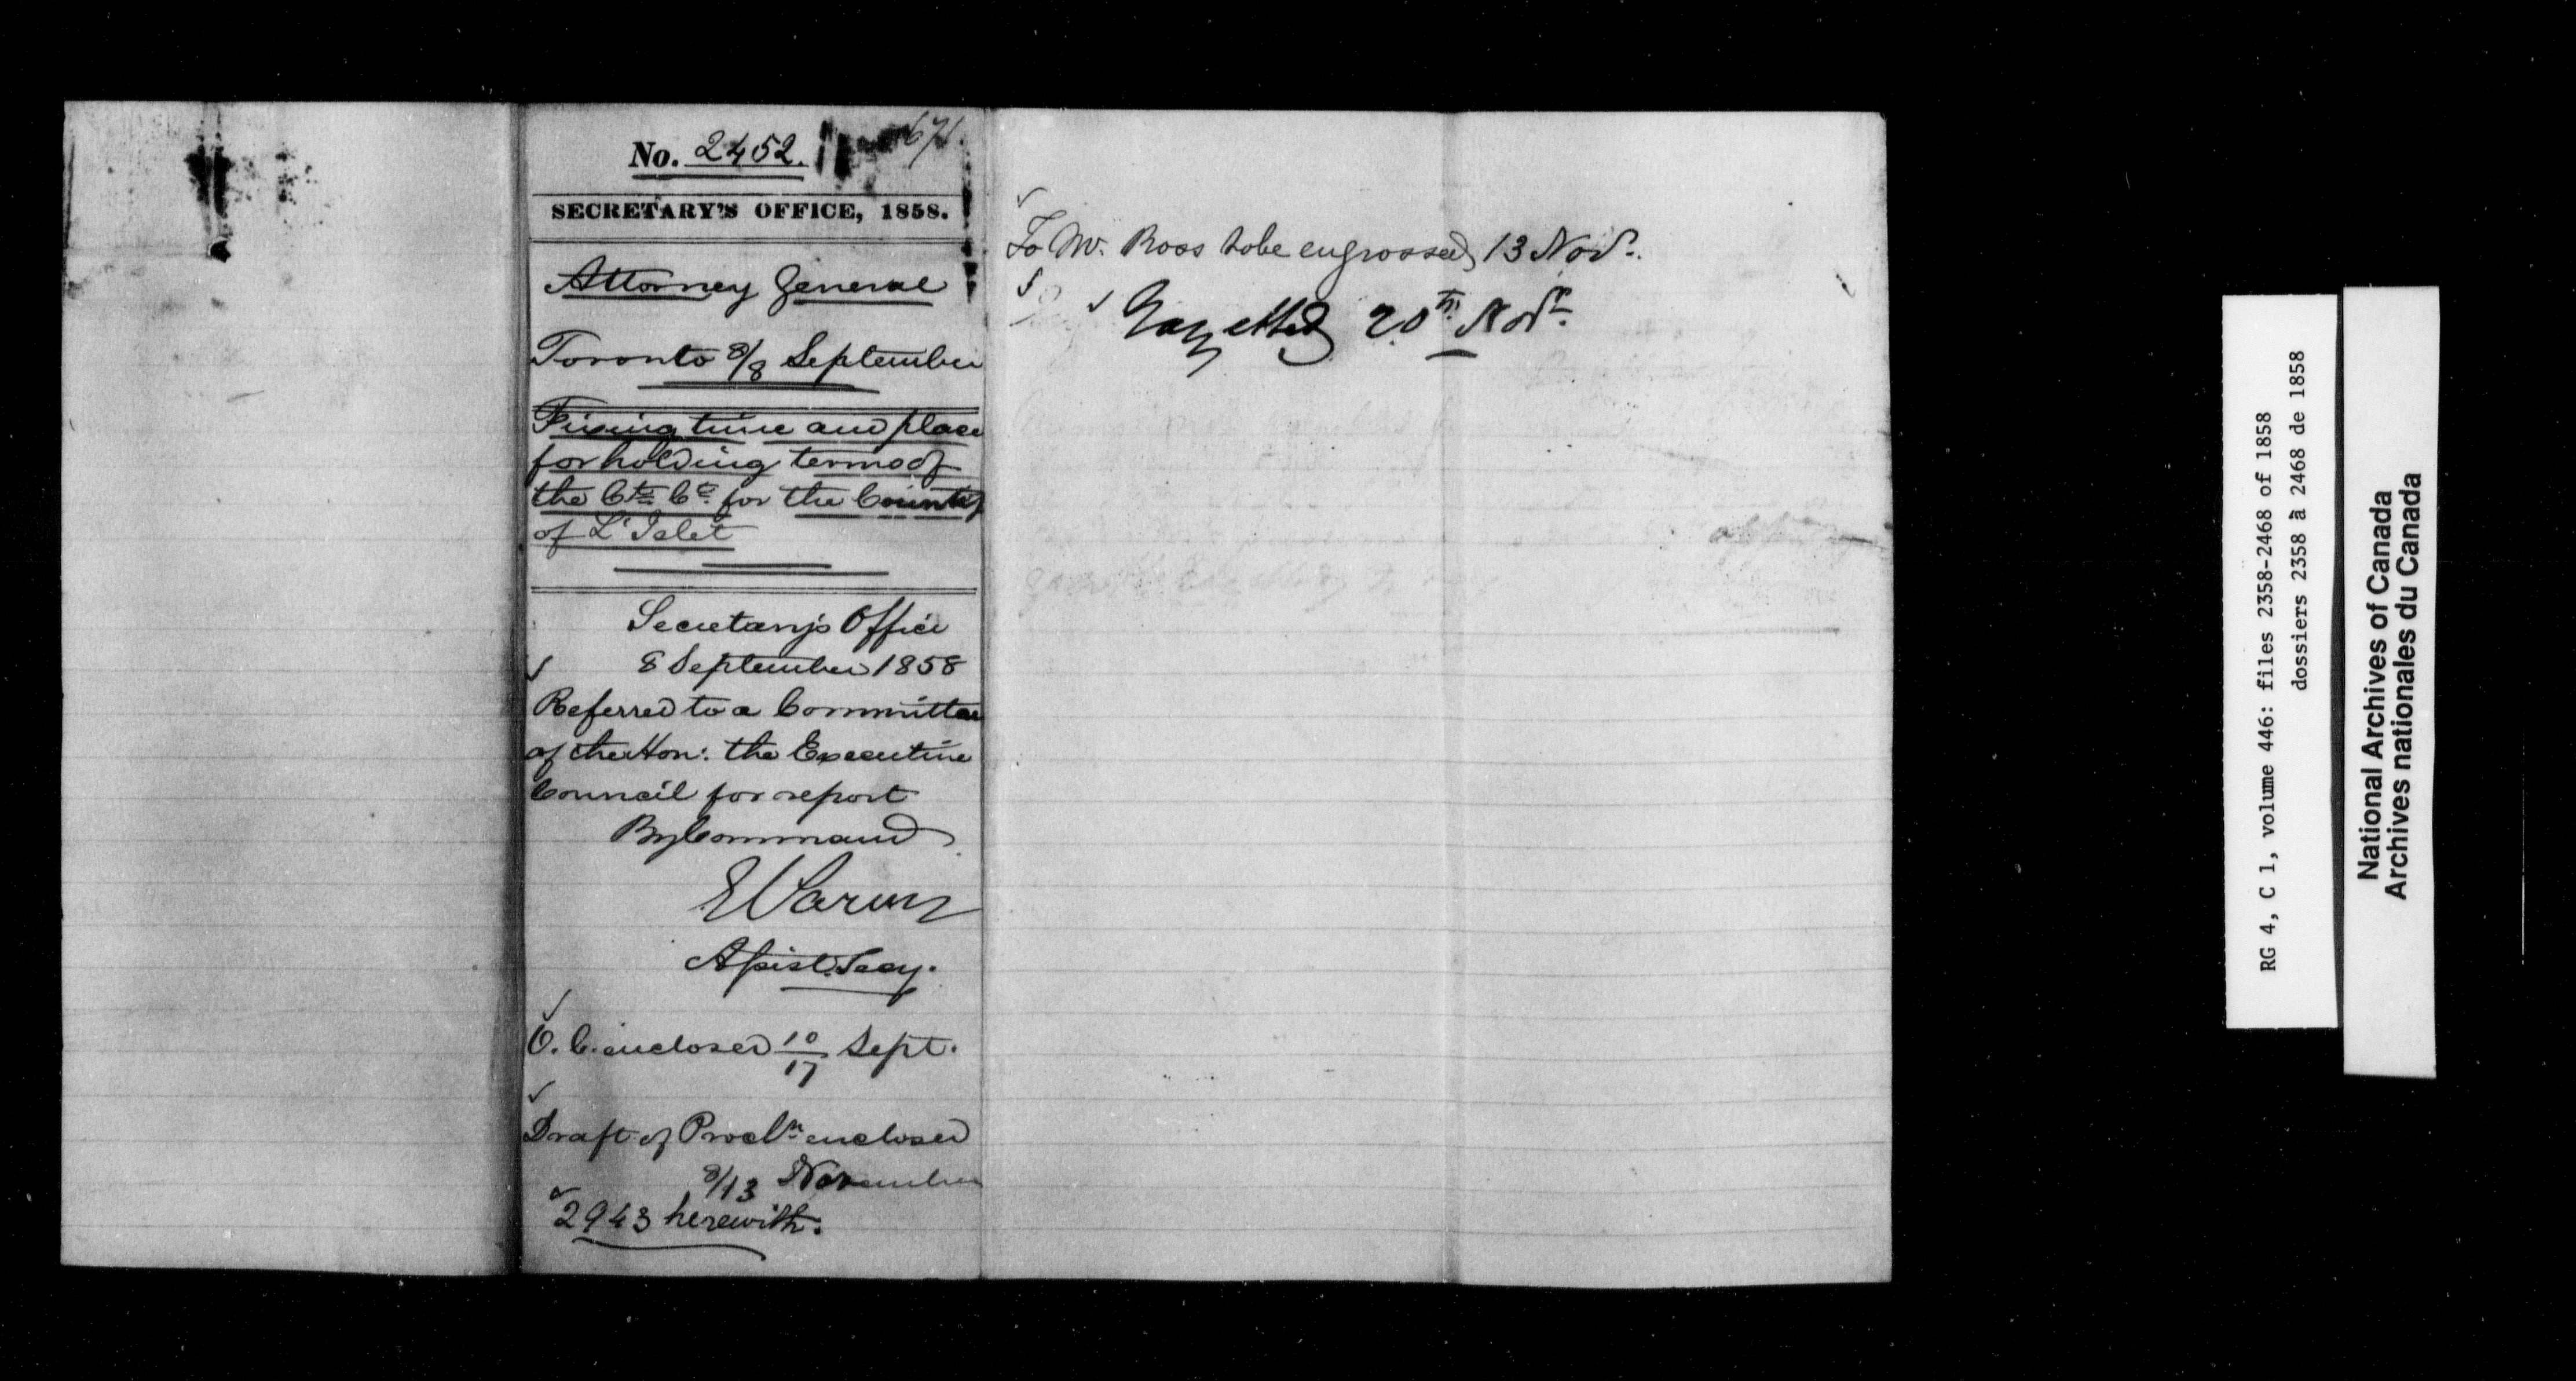 No. 2452.
SECRETARY'S OFFICE, 1858.
Attorney General
Toronto 8/8 September
Fixing time and place
for holding terms of
the Ct. Ct. for the County
of L'Islet
Secretary's Office
8 September 1858
Referred to a Committee
of the Hon: the Executive
Council for report
By Command
E Parent
Assist. Secy.
O. C. enclosed 10/17 Sept.
Draft of Procln. enclosed
8/13 November
2943 herewith.
To Mr. Ross to be engrossed 13 Novr.
Gazetted 20th Novr.
RG 4, C 1, volume 446: files 2358-2468 of 1858
dossiers 2358 à 2468 de 1858
National Archives of Canada
Archives nationales du Canada